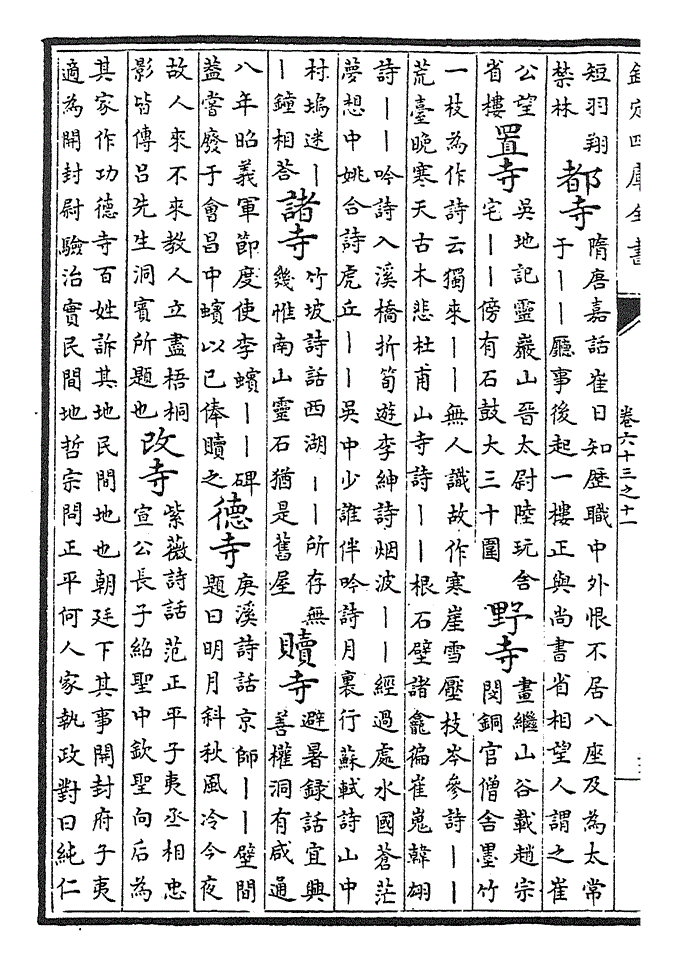 欽定四庫全書
卷六十三之十一
短羽翔
禁林
都寺
隋唐嘉話崔日知歷職中外恨不居八座及為太常
于丨丨廳事後起一樓正與尚書省相望人謂之崔
公望
省樓
置寺
吳地記靈巖山晉太尉陸玩舍
宅丨丨傍有石鼓大三十圍
野寺
畫繼山谷載趙宗
閔銅官僧舍墨竹
一枝為作詩云獨來丨丨無人識故作寒崖雪壓枝岑參詩丨丨
荒臺晚寒天古木悲杜甫山寺詩丨丨根石壁諸龕徧崔嵬韓翃
詩丨丨吟詩入溪橋折筍遊李紳詩烟波丨丨經過處水國蒼茫
夢想中姚合詩虎丘丨丨吳中少誰伴吟詩月裏行蘇軾詩山中
村塢迷丨
丨鐘相答
諸寺
竹坡詩話西湖丨丨所存無
幾惟南山靈石猶是舊屋
贖寺
避暑録話宜興
善權洞有咸通
八年昭義軍節度使李蠙丨丨碑
蓋嘗廢于會昌中蠙以已俸贖之
德寺
庚溪詩話京師丨丨壁間
題曰明月斜秋風冷今夜
故人來不來教人立盡梧桐
影皆傳呂先生洞賓所題也
改寺
紫薇詩話范正平子夷丞相忠
宣公長子紹聖中欽聖向后為
其家作功德寺百姓訴其地民間地也朝廷下其事開封府子夷
適為開封尉驗治實民間地哲宗問正平何人家執政對曰純仁